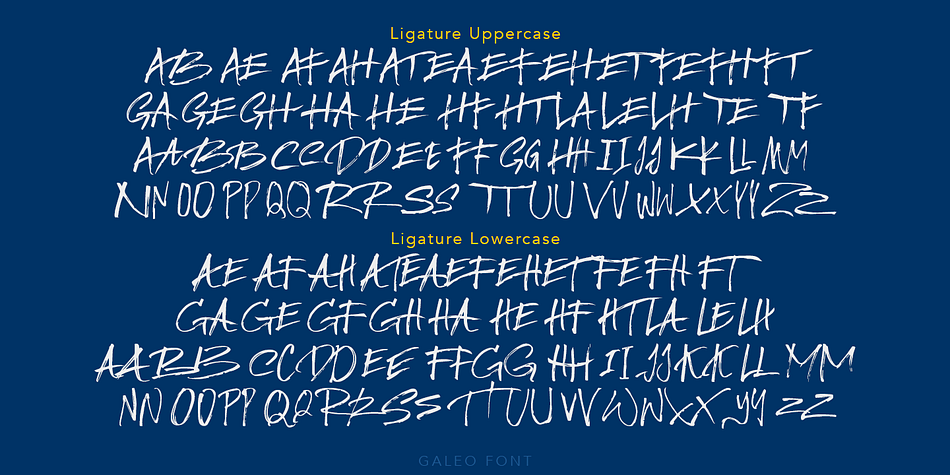 Ligature Uppercase
AB AE AF AH AT EA EE EF EH ET FE FH FT
GA GE GH HA HE HF HT LA LE LH TE TF
AA BB CC DD EE FF GG HH II JJ KK LL MM
NN OO PP QQ RR SS TT UU VV WW XX YY ZZ
Ligature Lowercase
AE AF AH AT EA EF EH ET FE FH FT
GA GE GF GH HA HE HF HT LA LE LH
AA BB CC DD EE FF GG HH II JJ KK LL MM
NN OO PP QQ RR SS TT UU VV WW XX YY ZZ
GALEO FONT